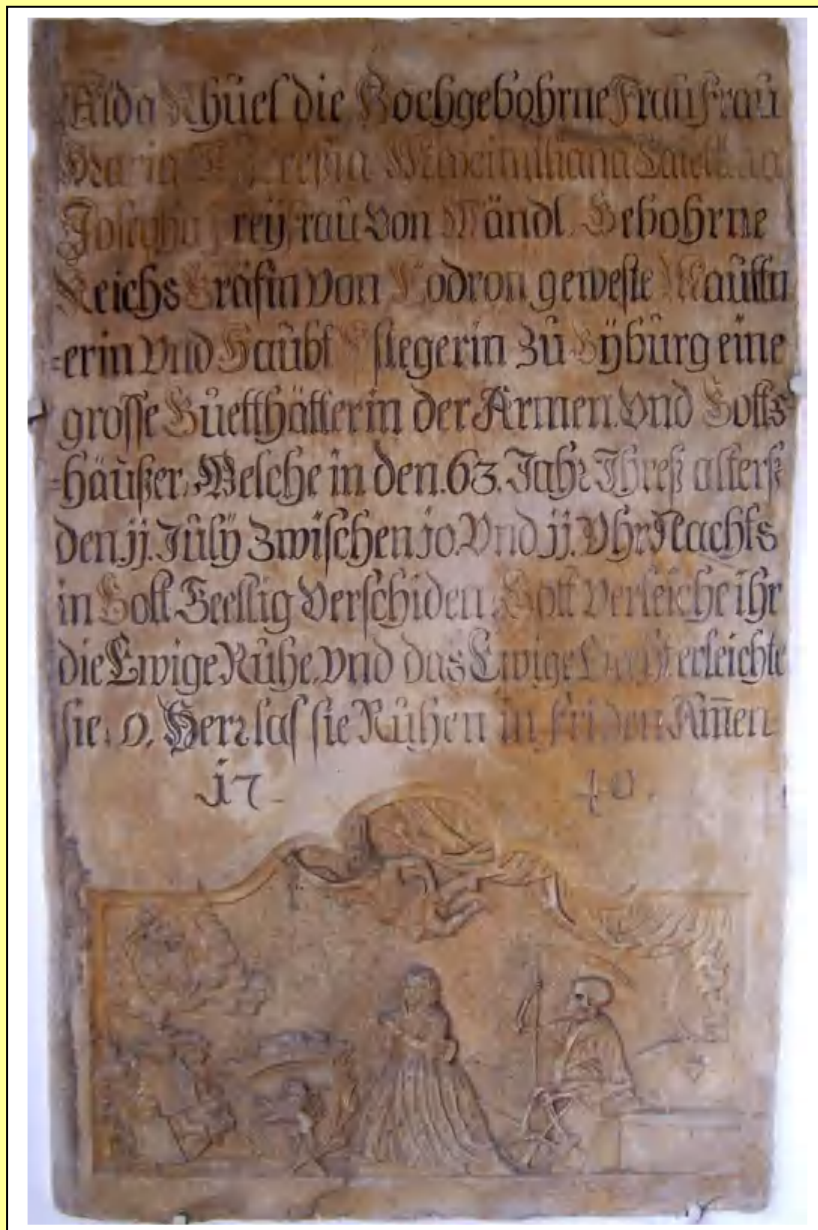 Alda Rhüet die Hochgebohrne Frau Frau
Maria Theresia Maximiliana
Josepha Freyfrau Von Mändl. Gebohrne
Reichs Gräfin Von Lodron geweste Mauttn
=erin Vnd Haubt Pflegerin Zu Gyburg eine
grosse Guetthätterin der Armen Vnd Gotts
=häußer, Welche in den. 63. Jahr Ihreß alterß
den jj. July Zwischen jo. Vnd jj. Vhr Nachts
in Gott Seellig Verschiden. Gott Verleiche ihr
die Ewige Ruhe. Vnd das Ewige Liecht erleichte
sie. O. Herr las sie Ruhen in friden Am̄en
j7 40.